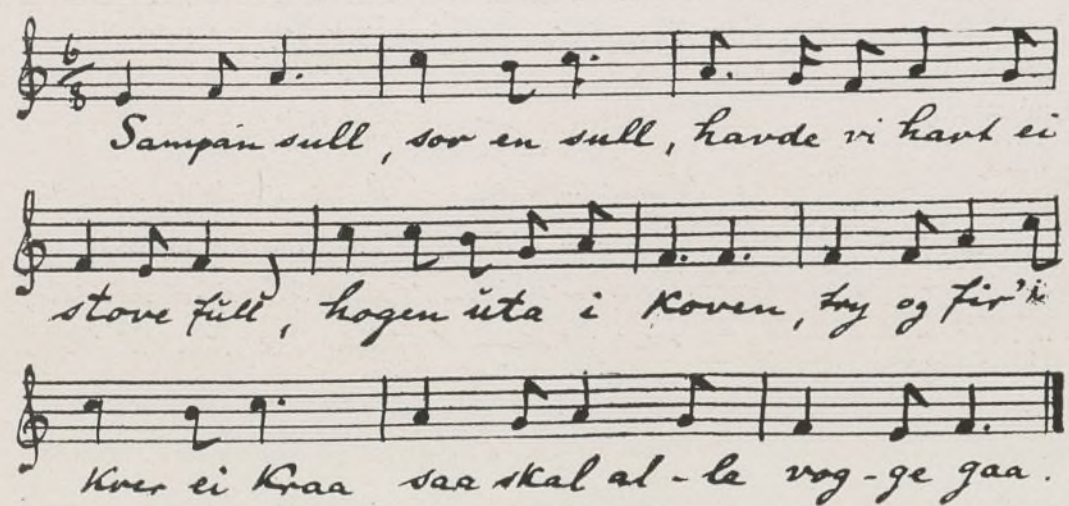 Sampan sull, sov en sull, havde vi havt ei
stove full, hogen uta i koven, try og fir' i
kver ei Kraa saa skal al-le vog-ge gaa.